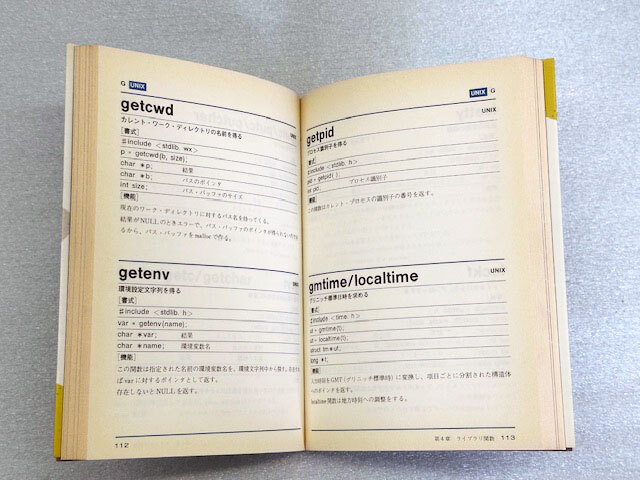 G UNIX
getcwd
UNIX
カレント・ワーク・ディレクトリの名前を得る
[書式]
#include <stdlib. wx>
p = getcwd(b, size);
char *p; 結果
char *b; パスのポインタ
int size; パス・バッファのサイズ
[機能]
現在のワーク・ディレクトリに対するパス名を持ってくる。
結果がNULLのときエラーで、パス・バッファのポインタが得られないのであ
るから、パス・バッファをmallocで作る。
getenv
環境設定文字列を得る
[書式]
#include <stdlib. h>
var = getenv(name);
char *var; 結果
char *name; 環境変数名
[機能]
この関数は指定された名前の環境変数名を、環境文字列中から探す。
ばvarに対するポインタとして返す。
存在しないとNULLを返す。
112
UNIX G
getpid
UNIX
プロセス識別子を得る
[書式]
#include <stdlib. h>
pid = getpid( );
int pid; プロセス識別子
[機能]
この関数はカレント・プロセスの識別子の番号を返す。
gmtime/localtime
UNIX
グリニッチ標準日時を求める
[書式]
#include <time. h>
ut = gmtime(t);
ut = localtime(t);
struct tm*ut;
long *t;
[機能]
入力時刻をGMT(グリニッチ標準時)に変換し、項目ごとに分割された構造体
へのポインタを返す。
localtime関数は地方時刻への調整をする。
第4章 ライブラリ関数 113